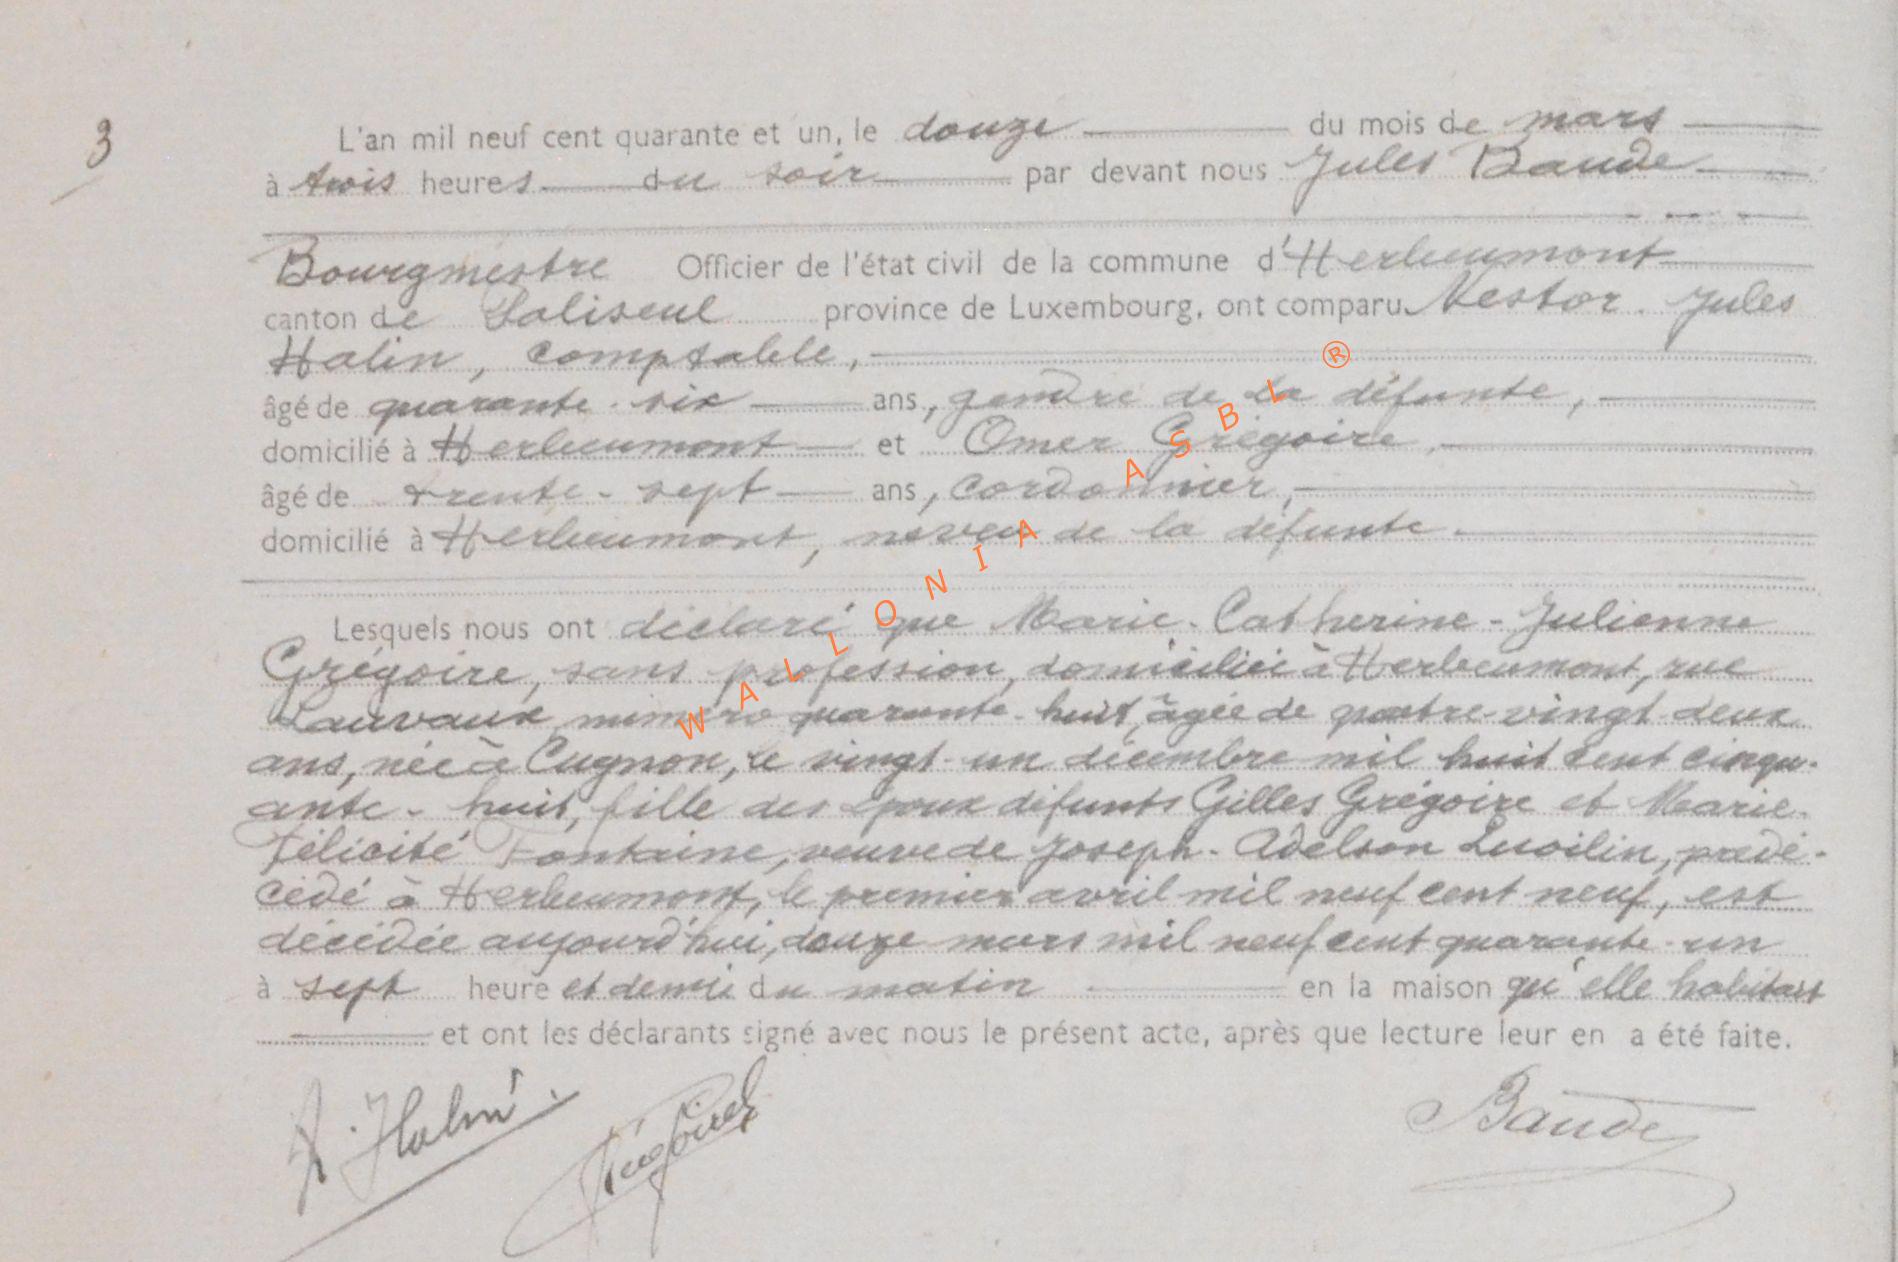 3
L'an mil neuf cent quarante et un, le douze du mois de mars
à trois heures du soir par devant nous Jules Baude
Bourgmestre Officier de l'état civil de la commune d'Herbeumont
canton de Paliseul province de Luxembourg, ont comparu Nestor. Jules
Halin, comptable,
âgé de quarante-six ans, gendre de la défunte,
domicilié à Herbeumont et Omer Grégoire,
âgé de trente-sept ans, cordonnier,
domicilié à Herbeumont, neveu de la défunte.
Lesquels nous ont déclaré que Marie-Catherine-Julienne
Grégoire, sans profession, domiciliée à Herbeumont, rue
Lauvaux numéro quarante-huit, âgée de quatre-vingt-deux
ans, née à Cugnon, le vingt-un décembre mil huit cent cinqu-
ante-huit, fille des époux défunts Gilles Grégoire et Marie-
Félicité Fontaine, veuve de Joseph-Adelson, prédé-
cédé à Herbeumont, le premier avril mil neuf cent neuf, est
décédée aujourd'hui, douze mars mil neuf cent quarante-un
à sept heure et demie du matin en la maison qu'elle habitait
et ont les déclarants signé avec nous le présent acte, après que lecture leur en a été faite.
Halin Grégoire Baude
WALLONIA ASBL ®